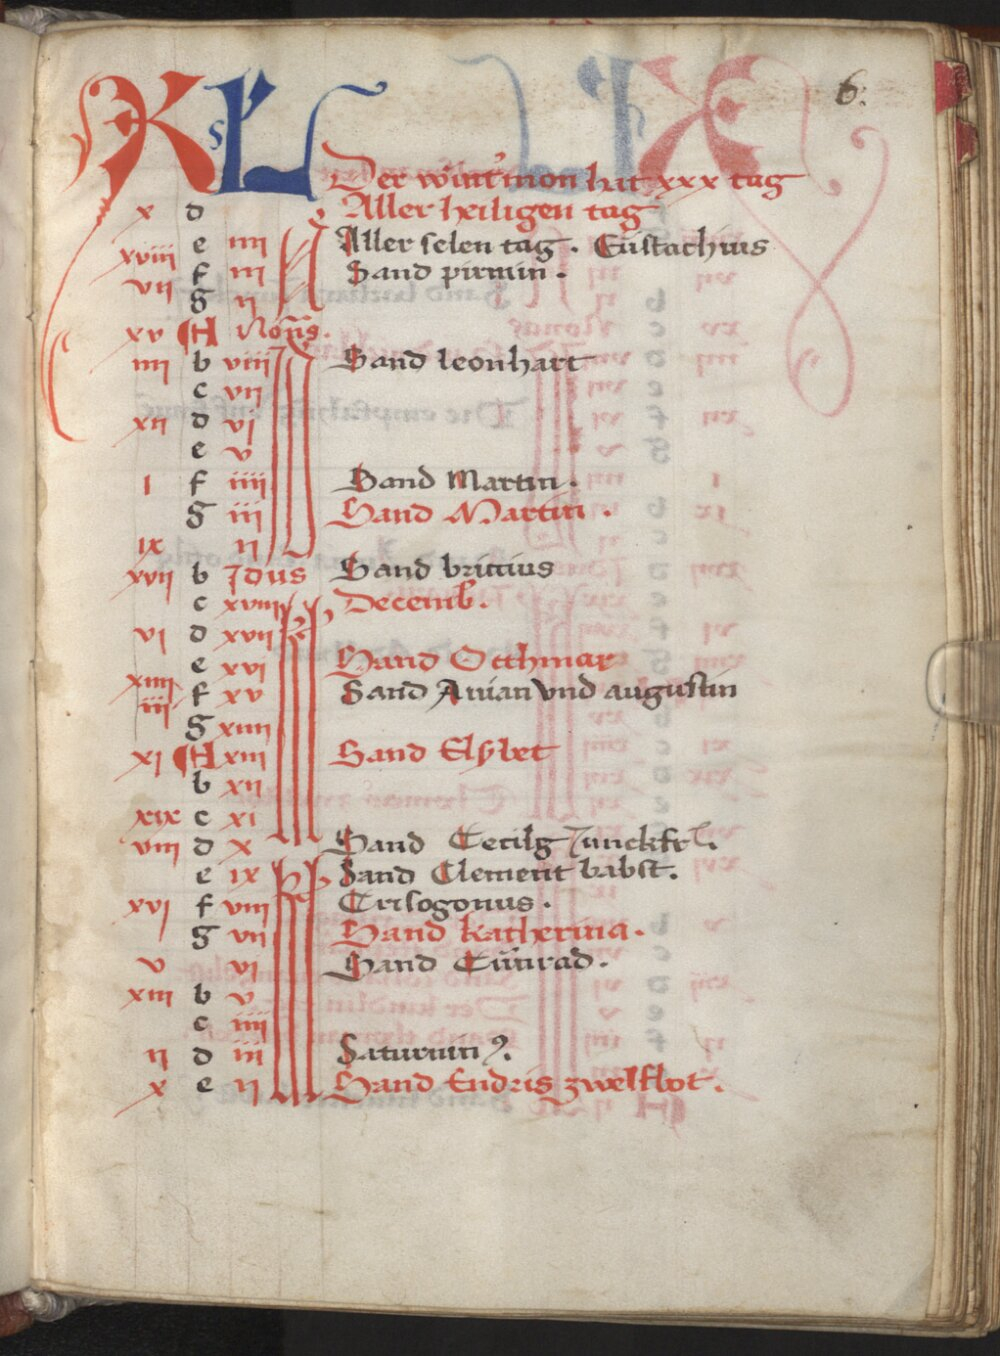 6.
KL
Der wint'mon hat xxx tag
x d Aller heiligen tag
xviii e iiii Aller selen tag. Eustachius
vii f iii Sand pirmin.
g ii
xv A Nonas.
iiii b viii Sand leonhart
c vii
xii d vi
e v
i f iiii Sand Martin.
g iii Sand Martin.
ix ii
xvii b Idus Sand brictius
c xviii Decemb.
vi d xvii
e xvi Sand Otthmar
xiiii f xv Sand Anian vnd augustin
iii g xiiii
xi A xiii Sand Elsbet
b xii
xix c xi
viii d x Sand Cecilg Junckfr.
e ix Sand Clement babst.
xvi f viii Crisogonus.
g vii Sand Katherina.
v vi Sand Cunrad.
xiii b v
c iiii
ii d iii Saturnin9.
x e ii Sand Endris zwelfbot.